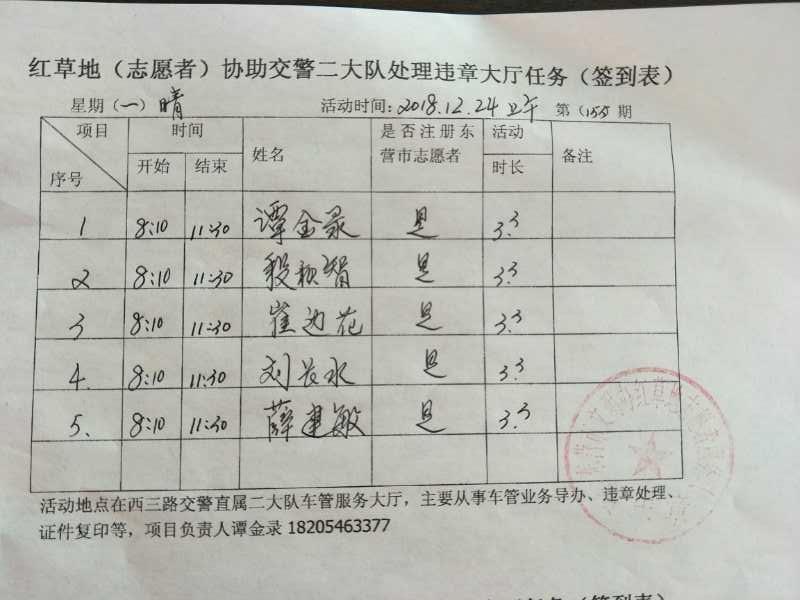 红草地（志愿者）协助交警二大队处理违章大厅任务（签到表）
星期（一）晴 活动时间:2018.12.24上午 第（155期
项目 时间 姓名 是否注册东营市志愿者 活动时长 备注
序号 开始 结束
1 8:10 11:30 谭金录 是 3.3
2 8:10 11:30 段颖智 是 3.3
3 8:10 11:30 崔边花 是 3.3
4. 8:10 11:30 刘长水 是 3.3
5. 8:10 11:30 薛建敏 是 3.3
活动地点在西三路交警直属二大队车管服务大厅，主要从事车管业务导办、违章处理、
证件复印等，项目负责人谭金录 18205463377
（签到表）